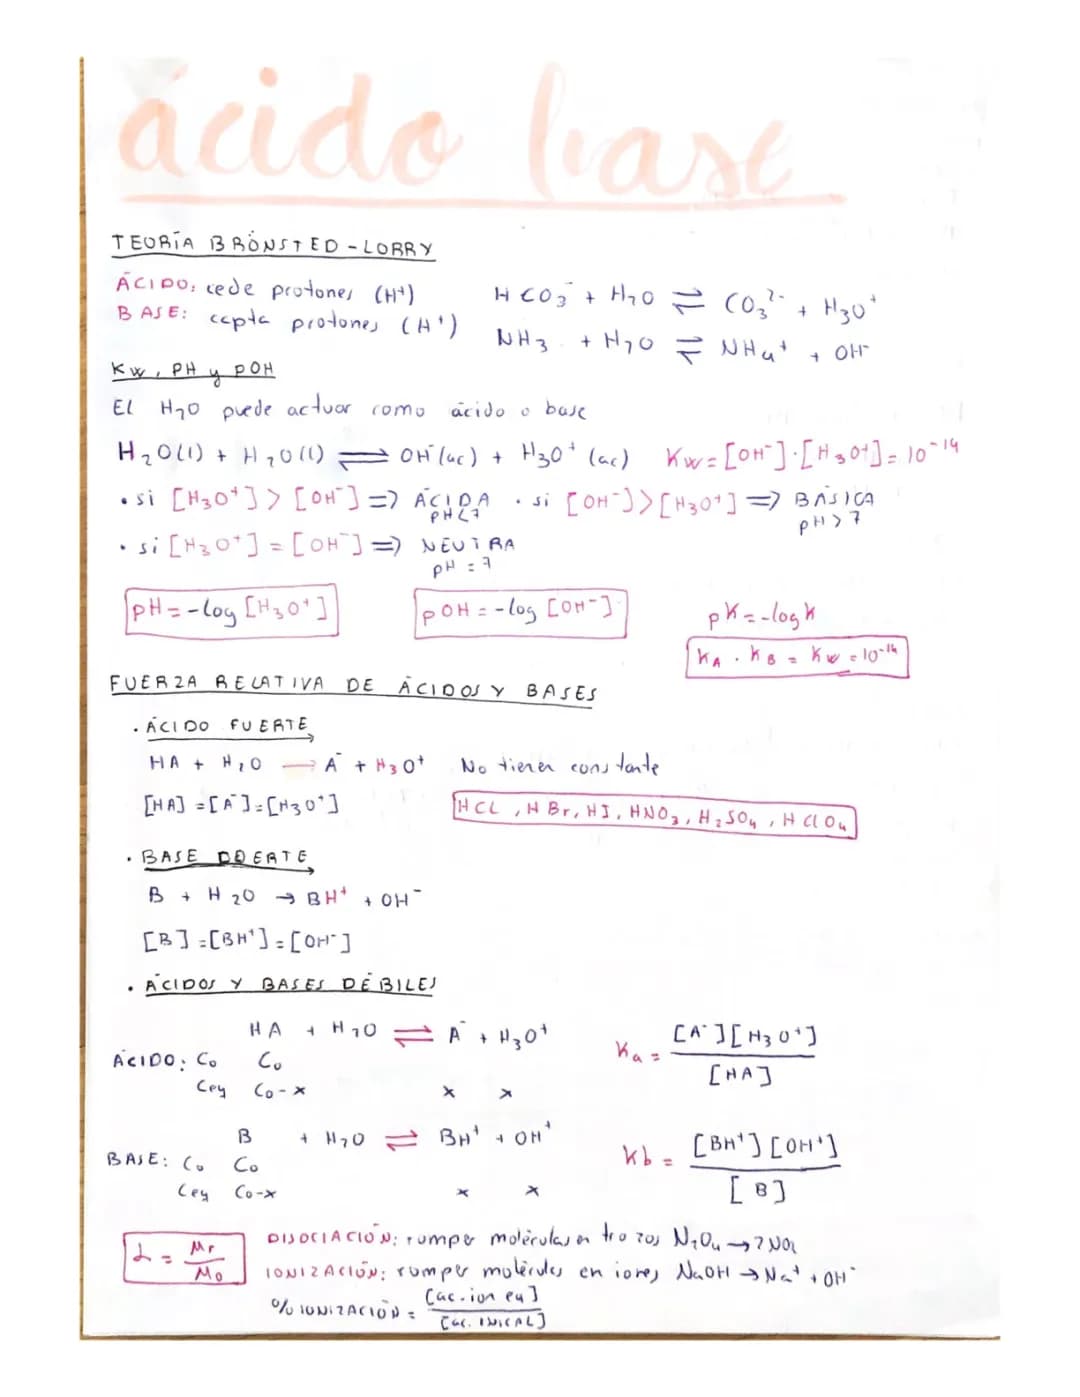 ácido base
TEORÍA BRÖNSTED-LORRY
ÁCIDO: cede protones (H⁺)
BASE: capta protones (H⁺)
HCO₃⁻ + H₂O ⇌ CO₃²⁻ + H₃O⁺
NH₃ + H₂O ⇌ NH₄⁺ + OH⁻
Kw, PH y POH
El H₂O puede actuar como ácido o base
H₂O(l) + H₂O(l) ⇌ OH⁻(ac) + H₃O⁺(ac) Kw=[OH⁻]·[H₃O⁺]=10⁻¹⁴
• si [H₃O⁺] > [OH⁻] => ÁCIDA PH<7 • si [OH⁻]>[H₃O⁺] => BÁSICA pH>7
• si [H₃O⁺] = [OH⁻] => NEUTRA pH=7
pH=-log [H₃O⁺] pOH=-log [OH⁻] pK=-logK
KA · KB = Kw = 10⁻¹⁴
FUERZA RELATIVA DE ÁCIDOS Y BASES
• ÁCIDO FUERTE
HA + H₂O → A⁻ + H₃O⁺ No tienen constante
[HA]=[A⁻]=[H₃O⁺] HCL, HBr, HI, HNO₃, H₂SO₄, HClO₄
• BASE
B + H₂O → BH⁺ + OH⁻
[B]=[BH⁺]=[OH⁻]
• ÁCIDOS Y BASES DÉBILES
HA + H₂O ⇌ A⁻ + H₃O⁺ Ka = [A⁻][H₃O⁺] / [HA]
ÁCIDO: Co Co
Ceq Co-x x x
B + H₂O ⇌ BH⁺ + OH⁺ Kb = [BH⁺][OH⁺] / [B]
BASE: Co Co
Ceq Co-x x x
= Mr / Mo
DISOCIACIÓN: romper moléculas en trozos N₂O₄ → 2NO₂
IONIZACIÓN: romper moléculas en iones NaOH → Na⁺ + OH⁻
% IONIZACIÓN = [ac. ion eq] / [ac. INICAL]